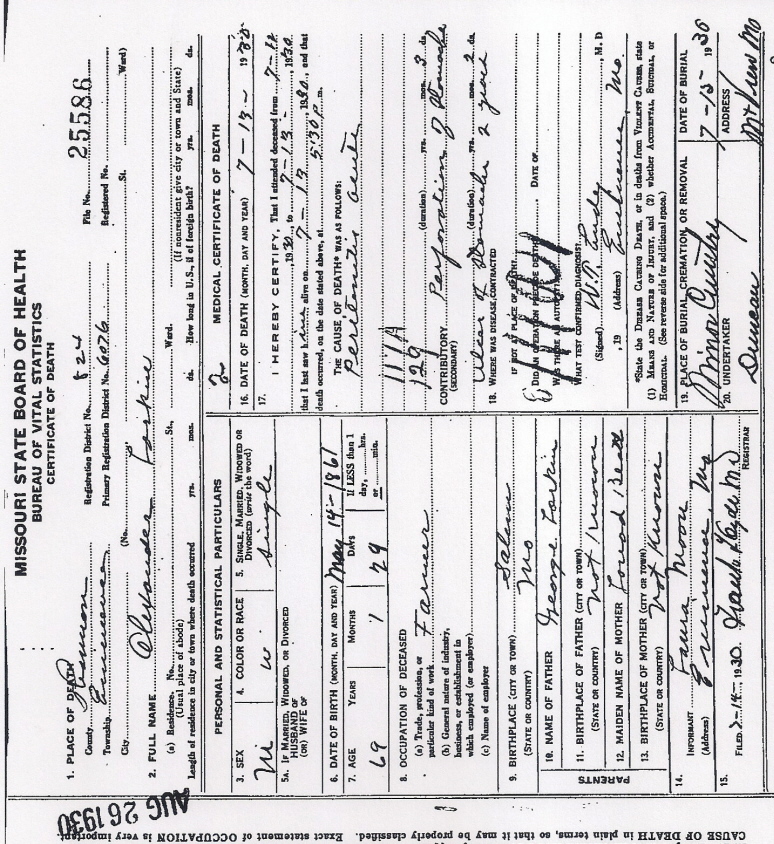 MISSOURI STATE BOARD OF HEALTH
BUREAU OF VITAL STATISTICS
CERTIFICATE OF DEATH
1. PLACE OF DEATH
County Shannon Registration District No. 824 File No. 25586
Township Eminence Primary Registration District No. 6076 Registered No.
City (No. St. Ward)
2. FULL NAME Alexander Larkin
(a) Residence. No. St., Ward.
(Usual place of abode) (If nonresident give city or town and State)
Length of residence in city or town where death occurred yrs. mos. ds. How long in U.S., if of foreign birth? yrs. mos. ds.
PERSONAL AND STATISTICAL PARTICULARS
3. SEX 4. COLOR OR RACE 5. SINGLE, MARRIED, WIDOWED OR DIVORCED (write the word)
M W Single
5A. IF MARRIED, WIDOWED, OR DIVORCED
HUSBAND OF
(OR) WIFE OF
6. DATE OF BIRTH (MONTH, DAY AND YEAR) May 14-1861
7. AGE YEARS MONTHS DAYS If LESS than 1 day, hrs. or min.
69 1 29
8. OCCUPATION OF DECEASED
(a) Trade, profession, or particular kind of work Farmer
(b) General nature of industry, business, or establishment in which employed (or employer)
(c) Name of employer
9. BIRTHPLACE (CITY OR TOWN) Salem
(STATE OR COUNTRY) Mo
PARENTS
10. NAME OF FATHER George Larkin
11. BIRTHPLACE OF FATHER (CITY OR TOWN) Not Known
(STATE OR COUNTRY)
12. MAIDEN NAME OF MOTHER
13. BIRTHPLACE OF MOTHER (CITY OR TOWN) Not Known
(STATE OR COUNTRY)
14. INFORMANT Moore
(Address) Eminence, Mo
15. FILED 1930 Frank Hyde MD REGISTRAR
2 MEDICAL CERTIFICATE OF DEATH
16. DATE OF DEATH (MONTH, DAY AND YEAR) 7-13- 1930
17. I HEREBY CERTIFY, That I attended deceased from 7-12
, 1930, to 7-13-, 1930.
that I last saw him alive on 7-13, 1930, and that
death occurred, on the date stated above, at 5:30 P m.
THE CAUSE OF DEATH* WAS AS FOLLOWS:
Peritonitis acute
111A
129 (duration) yrs. mos. 3 ds.
CONTRIBUTORY Perforation of Stomach
(SECONDARY)
Ulcer of Stomach 2 years (duration) yrs. mos. 2 ds.
18. WHERE WAS DISEASE CONTRACTED
IF NOT AT PLACE OF DEATH?
DID AN OPERATION PRECEDE DEATH? DATE OF
WAS THERE AN AUTOPSY?
WHAT TEST CONFIRMED DIAGNOSIS?
(Signed) , M. D
, 19 (Address) Eminence Mo.
*State the DISEASE CAUSING DEATH, or in deaths from VIOLENT CAUSES, state
(1) MEANS AND NATURE OF INJURY, and (2) whether ACCIDENTAL, SUICIDAL, or
HOMICIDAL. (See reverse side for additional space.)
19. PLACE OF BURIAL, CREMATION, OR REMOVAL DATE OF BURIAL
7-15- 1930
20. UNDERTAKER ADDRESS
Duncan Mt View Mo
AUG 26 1930
CAUSE OF DEATH in plain terms, so that it may be properly classified. Exact statement of OCCUPATION is very important.